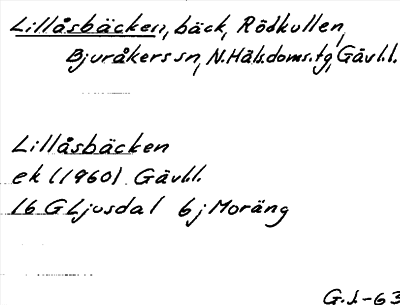 Lillåsbäcken, bäck, Rödkullen,
Bjuråkers sn, N.Häls.doms.tg, Gävl.l.
Lillåsbäcken
ek (1960) Gävl.l.
16 G Ljusdal 6j Moräng
G.J-63